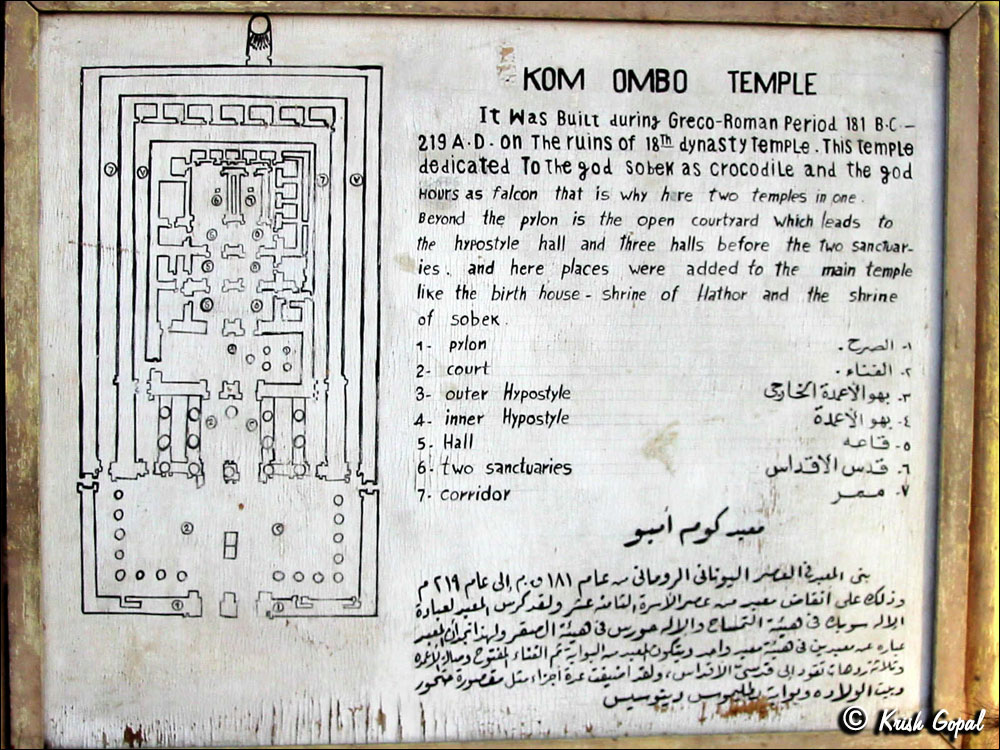 KOM OMBO TEMPLE
It Was Built during Greco-Roman Period 181 B.C-
219 A.D. on The ruins of 18th dynasty Temple. This temple
dedicated To the god Sobek as crocodile and the god
Hours as falcon that is why here two temples in one.
Beyond the pylon is the open courtyard which leads to
the hypostyle hall and three halls before the two sanctuar-
ies. and here places were added to the main temple
like the birth house - shrine of Hathor and the shrine
of sobek.
1- pylon
١- الصرح.
2- court
٢- الفناء.
3- outer Hypostyle
٣- بهو الأعمدة الخارجى
4- inner Hypostyle
٤- بهو الأعمدة
5- Hall
٥- قاعه
6- two sanctuaries
٦- قدس الاقداس
7- corridor
٧- ممر
معبد كوم أمبو
بنى المعبد فى العصر اليونانى الرومانى من عام ١٨١ ق.م إلى عام ٢١٩ م
وذلك على أنقاض معبد من عصر الأسرة الثامنة عشر ولقد كرس المعبد لعبادة
الإله سوبك فى هيئة التمساح والإله حورس فى هيئة الصقر ولهذا نجد أن المعبد
عباره عن معبدين فى هيئة معبد واحد ويتكون المعبد من البوابة ثم الفناء المفتوح وصالة الأعمدة
وثلاثة ردهات تقود إلى قدسى الأقداس، ولقد أضيفت عدة أجزاء مثل مقصورة حتحور
وبيت الولاده وبوابة بطليموس ديونيسيس
© Krish Gopal